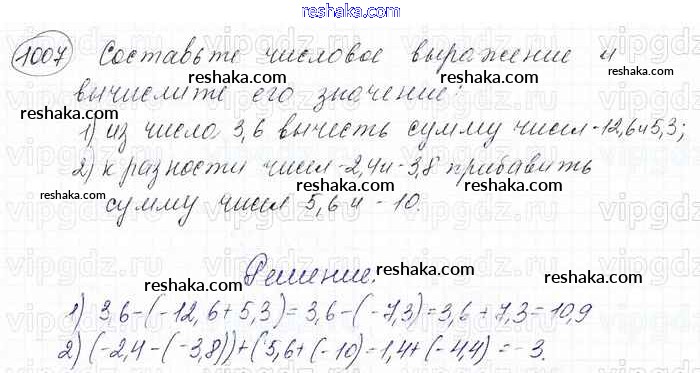 reshaka.com
1007 Составьте числовое выражение и
reshaka.com reshaka.com
вычислите его значение:
reshaka.com
1) из числа 3,6 вычесть сумму чисел -12,6 и 5,3;
2) к разности чисел -2,4 и -3,8 прибавить
reshaka.com reshaka.com
сумму чисел 5,6 и -10.
reshaka.com
Решение.
reshaka.com reshaka.com
1) 3,6-(-12,6+5,3)=3,6-(-7,3)=3,6+7,3=10,9
reshaka.com
2) (-2,4-(-3,8))+(5,6+(-10)=1,4+(-4,4)=-3.
reshaka.com